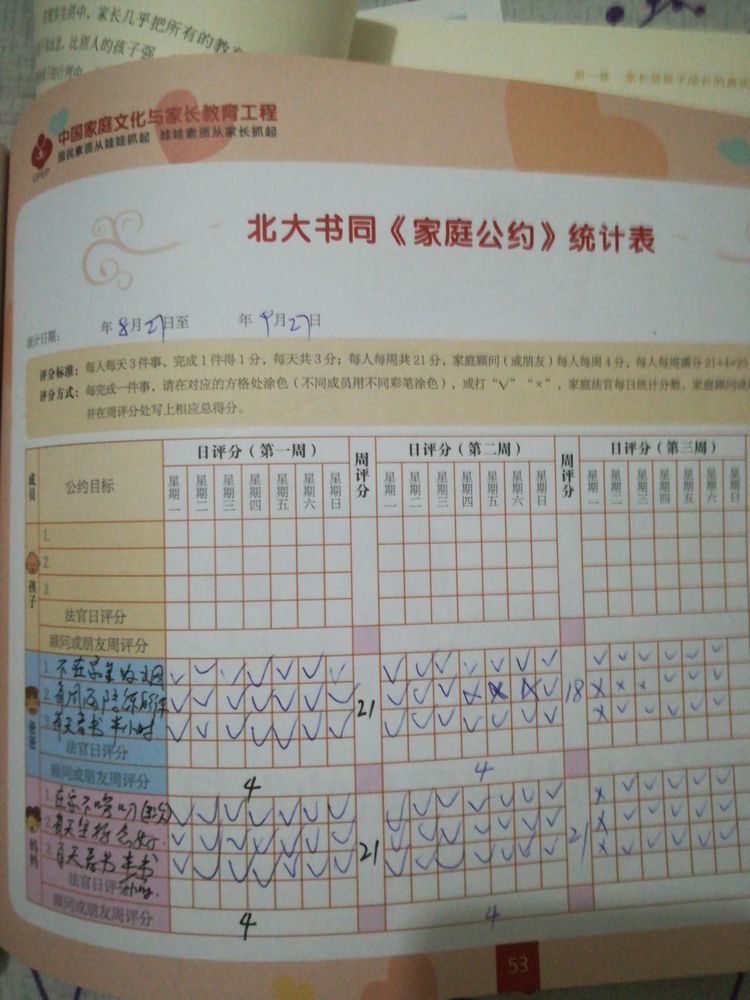 家长几乎把所有的教
比别人的孩子强
第一章 家长是孩子成长的
中国家庭文化与家长教育工程
国民素质从娃娃抓起 娃娃素质从家长抓起
CFEP
北大书同《家庭公约》统计表
统计日期: 年8月27日至 年9月27日
评分标准:每人每天3件事,完成1件得1分,每天共3分;每人每周共21分,家庭顾问(或朋友)每人每周4分,每人每周满分21+4=25
评分方式:每完成一件事,请在对应的方格处涂色(不同成员用不同彩笔涂色),或打“√”“×”,家庭法官每日统计分数、家庭顾问或
并在周评分处写上相应总得分。
成员 公约目标 日评分(第一周) 周评分 日评分(第二周) 周评分 日评分(第三周)
星期一 星期二 星期三 星期四 星期五 星期六 星期日 星期一 星期二 星期三 星期四 星期五 星期六 星期日 星期一 星期二 星期三 星期四 星期五 星期六 星期日
孩子
1.
2.
3.
法官日评分
顾问或朋友周评分
爸爸
1.不在家里 √ √ √ √ √ √ √ √ √ √ √ √ √ √ √ √ √ √ √ √ √
2. √ √ √ √ √ √ √ 21 √ √ √ × × × √ 18 × × × √ √ √ √
3.每天看书半小时 √ √ √ √ √ √ √ √ √ √ √ √ √ √ × √ √ √ √ √ √
法官日评分
顾问或朋友周评分 4 4
妈妈
1.在家不唠叨 √ √ √ √ √ √ √ √ √ √ √ √ √ √ × √ √ √ √ √ √
2.每天坚持 √ √ √ √ √ √ √ 21 √ √ √ √ √ √ √ 21 × √ √ √ √ √ √
3.每天看书半 √ √ √ √ √ √ √ √ √ √ √ √ √ √ × √ √ √ √ √ √
法官日评分
顾问或朋友周评分 4 4
53